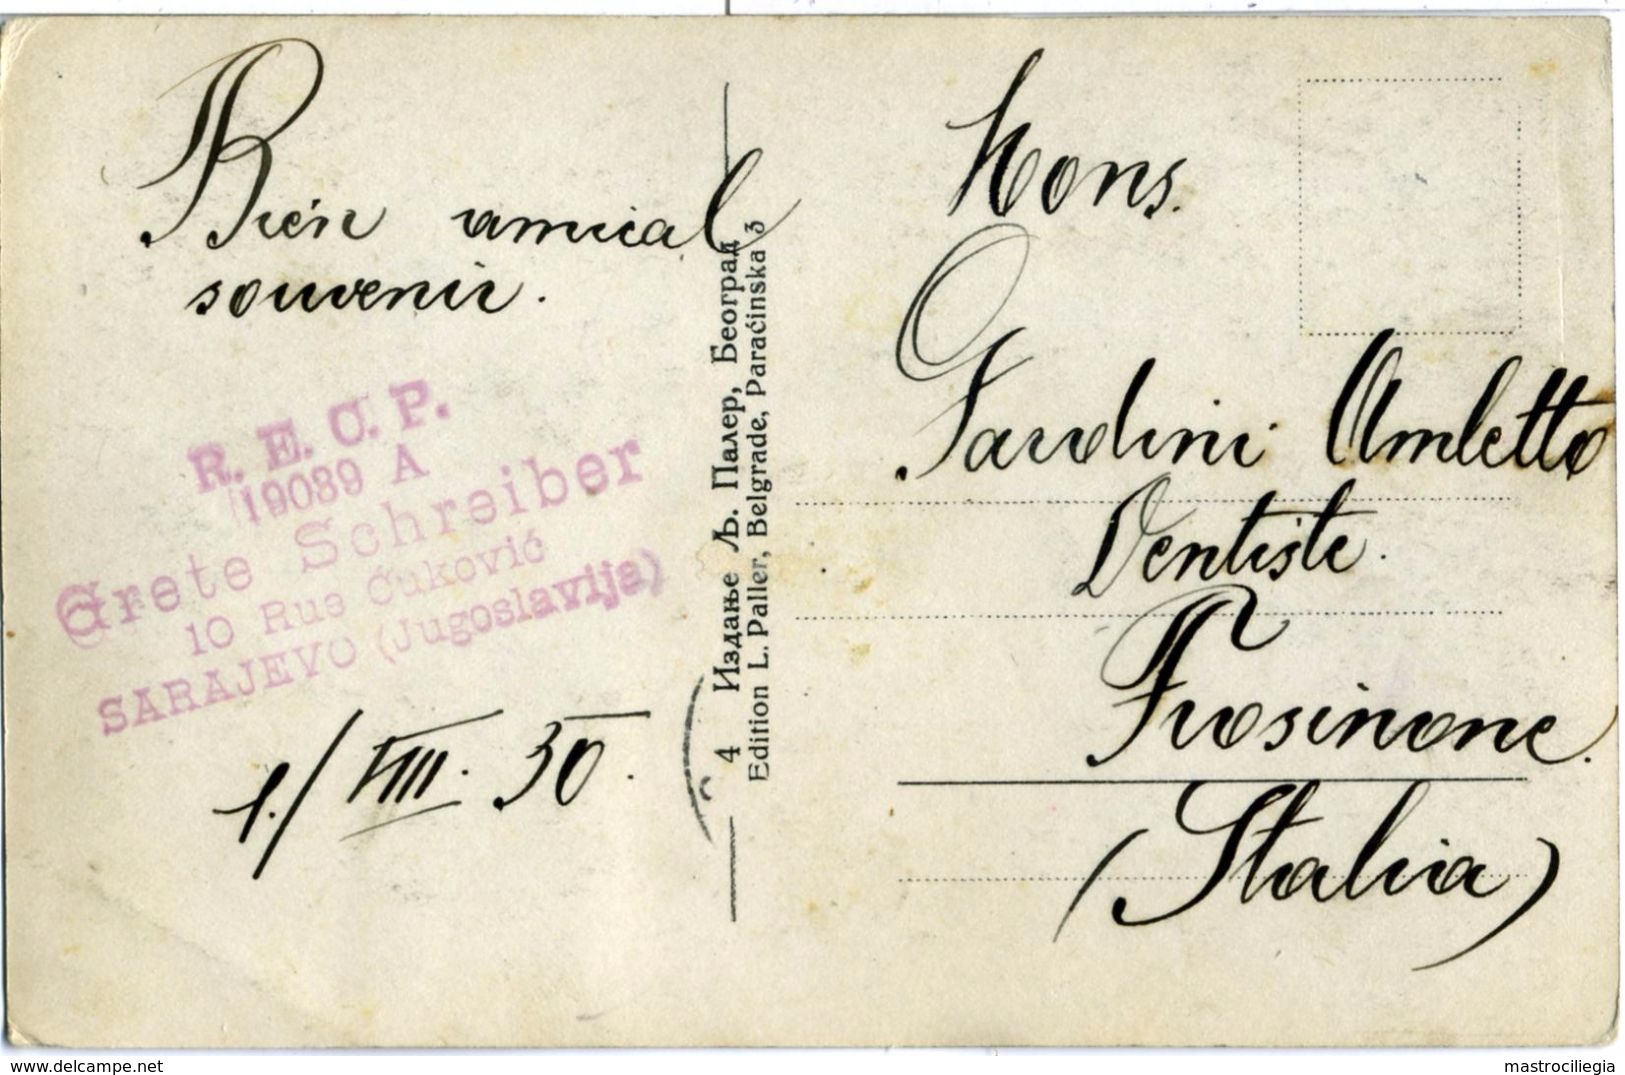 Bien amical
souvenir.
R. E. C. P.
19089 A
Grete Schreiber
10 Rue Ćuković
SARAJEVO (Jugoslavija)
1./VIII. 30.
4 Издање Љ. Палер, Београд
Edition L. Paller, Belgrade, Paraćinska 3
Mons.
Amletto
Dentiste.
Frosinone.
(Italia)
www.delcampe.net
mastrociliegia